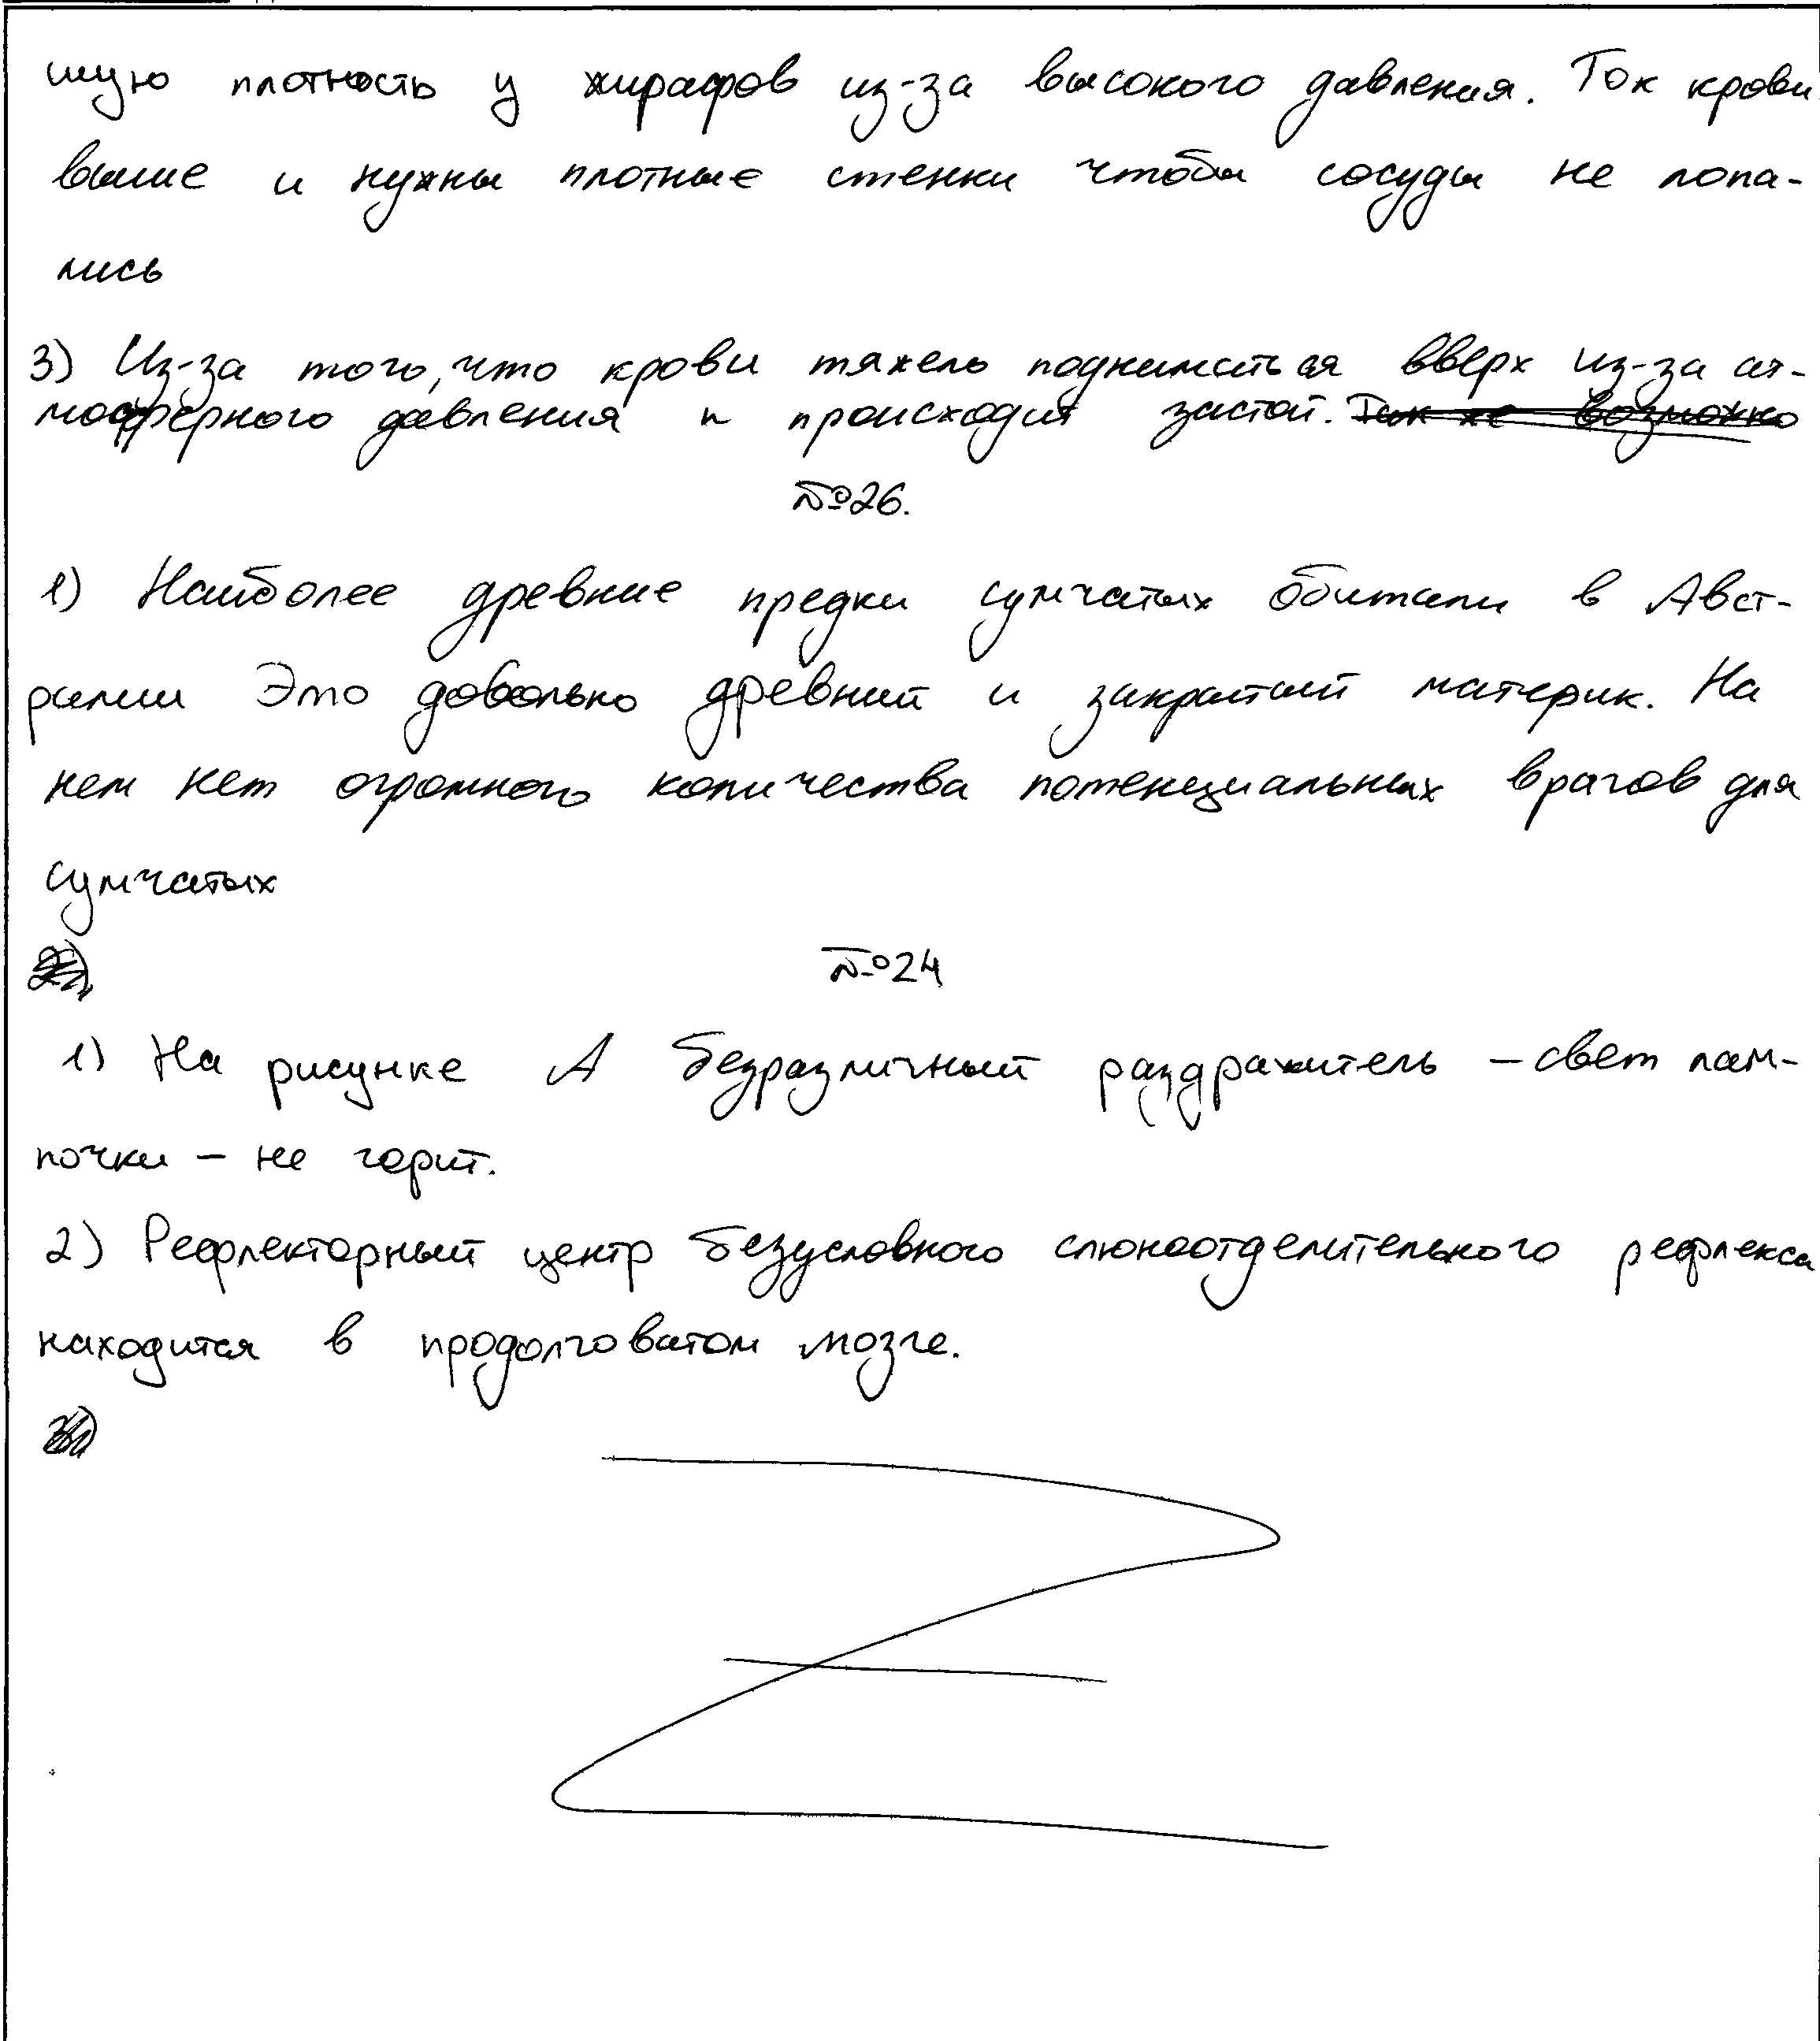 шую плотность у жирафов из-за высокого давления. Ток крови
выше и нужны плотные стенки чтобы сосуды не лопа-
лись
3) Из-за того, что крови тяжело подниматься вверх из-за ат-
мосферного давления и происходит застой. Так же возможно
№26.
1) Наиболее древние предки сумчатых обитали в Авст-
ралии Это довольно древний и закрытый материк. На
нем нет огромного количества потенциальных врагов для
сумчатых
2)
№24
1) На рисунке А безразличный раздражитель – свет лам-
почки – не горит.
2) Рефлекторный центр безусловного слюноотделительного рефлекса
находится в продолговатом мозге.
3)